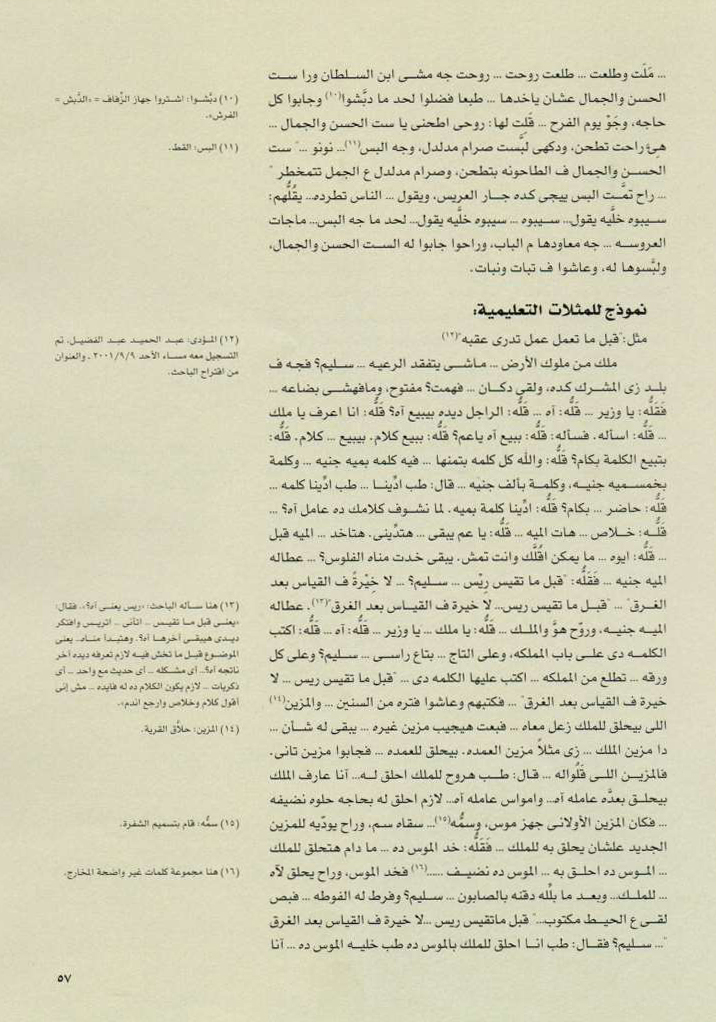 ... مَلَت وطلعت ... طلعت روحت ... روحت جه مشى ابن السلطان ورا ست
الحسن والجمال عشان ياخدها ... طبعا فضلوا لحد ما دبَّشوا(١٠) وجابوا كل
حاجه، وجَوّ يوم الفرح ... قَلِت لها: روحى اطحنى يا ست الحسن والجمال ...
هىَّ راحت تطحن، ودكهى لبِّست صرام مدلدل، وجه البس(١١)... نونو ..." ست
الحسن والجمال ف الطاحونه بتطحن، وصرام مدلدل ع الجمل تتمخطر "
... راح تمَّت البس ييجى كده جار العريس، ويقول ... الناس تطرده... يقُلُّهم:
سيبوه خلَّيه يقول... سيبوه ... سيبوه خلَّيه يقول... لحد ما جه البس... ماجات
العروسه ... جه معاودها م الباب، وراحوا جابوا له الست الحسن والجمال،
ولبَّسوها له، وعاشوا ف تبات ونبات.
نموذج للمثلات التعليمية:
مثل:"قبل ما تعمل عمل تدرى عقبه"(١٢)
ملك من ملوك الأرض ... ماشى يتفقد الرعيه ... سليم؟ فجه ف
بلد زى المشرك كده، ولقى دكان ... فهمت؟ مفتوح، ومافهشى بضاعه ...
فَقَلُّه: يا وزير ... قَلُّه: آه ... قَلُّه: الراجل ديده بيبيع آه؟ قَلُّه: انا اعرف يا ملك
... قَلُّه: اسأله. فسأله: قَلُّه: ببيع آه ياعم؟ قَلُّه: ببيع كلام. بيبيع ... كلام. قَلُّه:
بتبيع الكلمة بكام؟ قَلُّه: والله كل كلمه بتمنها ... فيه كلمه بميه جنيه ... وكلمة
بخمسميه جنيه، وكلمة بألف جنيه ... قال: طب ادِّينا ... طب ادِّينا كلمه ...
قَلُّه: حاضر ... بكام؟ قَلُّه: ادِّينا كلمة بميه. لما نشوف كلامك ده عامل آه؟ ...
قَلُّه: خلاص ... هات الميه ... قَلُّه: يا عم يبقى ... هتدِّينى. هتاخد ... الميه قبل
... قَلُّه: ايوه ... ما يمكن اقُلَّك وانت تمش. يبقى خدت مناه الفلوس؟ ... عطاله
الميه جنيه ... فَقَلُّه: "قبل ما تقيس ريِّس ... سليم؟ ... لا خيْرةً ف القياس بعد
الغرق" ... "قبل ما تقيس ريس... لا خيرة ف القياس بعد الغرق"(١٣). عطاله
الميه جنيه، وروّح هوَّ والملك ... قَلُّه: يا ملك ... يا وزير ... قَلُّه: آه ... قَلُّه: اكتب
الكلمه دى على باب المملكه، وعلى التاج ... بتاع راسى ... سليم؟ وعلى كل
ورقه ... تطلع من المملكه ... اكتب عليها الكلمه دى ... "قبل ما تقيس ريس ... لا
خيرة ف القياس بعد الغرق" ... فكتبهم وعاشوا فتره من السنين ... والمزين(١٤)
اللى بيحلق للملك زعل معاه ... فبعت هيجيب مزين غيره ... يبقى له شأن ...
دا مزين الملك ... زى مثلاً مزين العمده. بيحلق للعمده ... فجابوا مزين تانى.
فالمزين اللى قَلُواله ... قال: طب هروح للملك احلق له... آنا عارف الملك
بيحلق بعدَّه عامله آه... وامواس عامله آه... لازم احلق له بحاجه حلوه نضيفه
... فكان المزين الأولانى جهز موس، وسمُّه(١٥)... سقاه سم، وراح يودِّيه للمزين
الجديد علشان يحلق به للملك ... فَقَلُّه: خد الموس ده ... ما دام هتحلق للملك
... الموس ده احلق به ... الموس ده نضيف .....(١٦) فخد الموس، وراح يحلق لآه
... للملك... وبعد ما بلِّله دقنه بالصابون ... سليم؟ وفرط له الفوطه ... فبص
لقى ع الحيط مكتوب..." قبل ماتقيس ريس ...لا خيرة ف القياس بعد الغرق
"... سليم؟ فقال: طب انا احلق للملك بالموس ده طب خليه الموس ده ... آنا
(١٠) دبَّشوا: اشتروا جهاز الزِّفاف = «الدَّبش =
الفرش».
(١١) البس: القط.
(١٢) المؤدى: عبد الحميد عبد الفضيل. تم
التسجيل معه مساء الأحد ٢٠٠١/٩/٩. والعنوان
من اقتراح الباحث.
(١٣) هنا سأله الباحث: «ريس يعنى آه؟». فقال:
«يعنى قبل ما تقيس ... اتأنى ... اتريس وافتكر
ديدى هيبقى آخرها آه؟. وهتبدا مناه. يعنى
الموضوع قبل ما تخش فيه لازم تعرفه ديده آخر
ناتجه آه؟.. أى مشكله .. أى حديث مع واحد .. أى
ذكريات .. لازم يكون الكلام ده له فايده .. مش إنى
أقول كلام وخلاص وارجع اندم».
(١٤) المزين: حلاَّق القرية.
(١٥) سمُّه: قام بتسميم الشفرة.
(١٦) هنا مجموعة كلمات غير واضحة المخارج.
٥٧